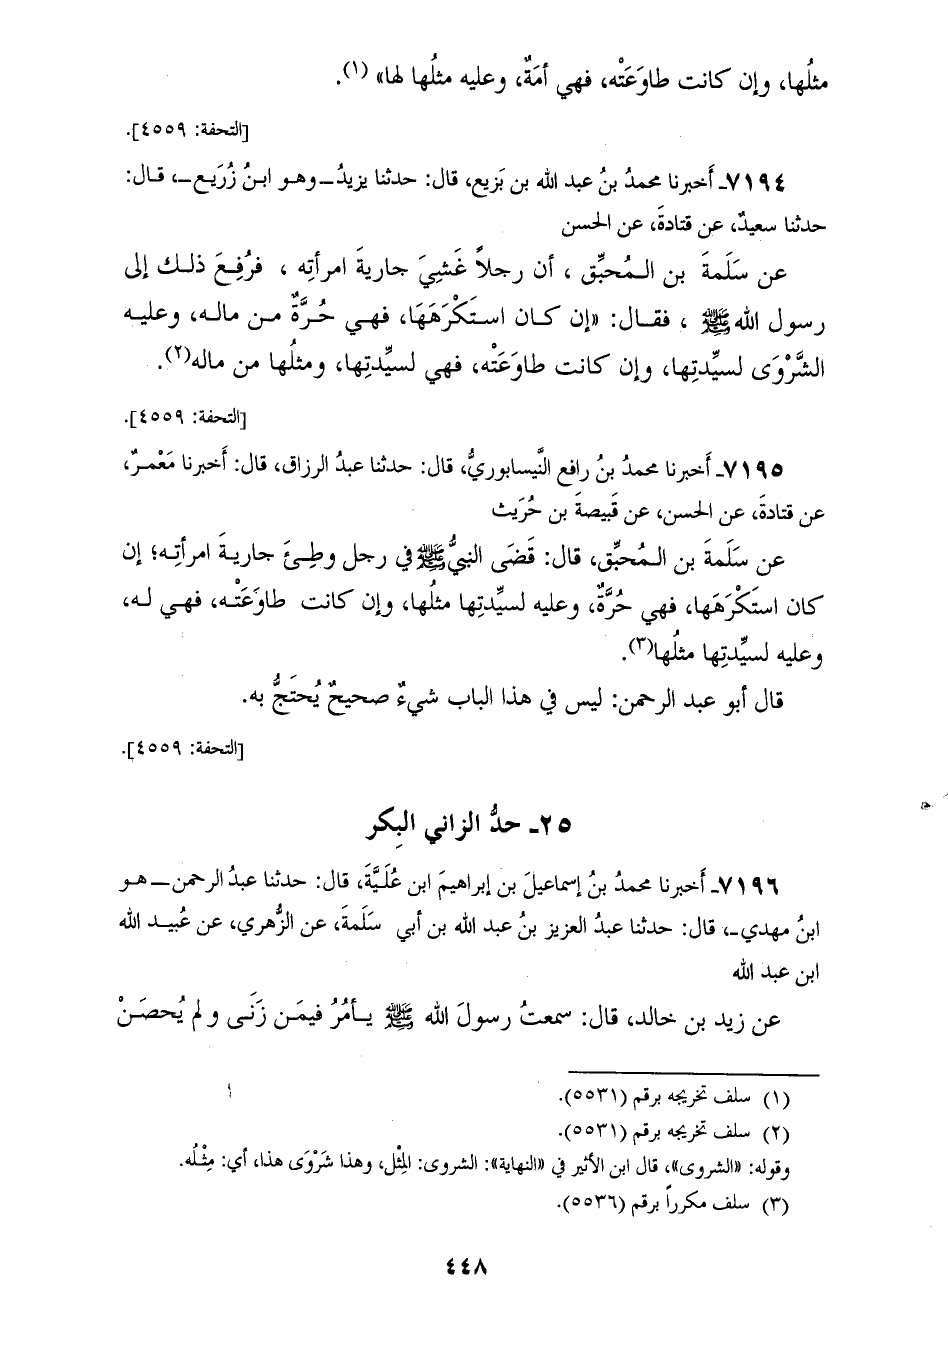 مثلُها، وإن كانت طاوَعَتْه، فهي أمَةٌ، وعليه مثلُها لها» (١).
[التحفة: ٤٥٥٩].
٧١٩٤ـ أَخبرنا محمدُ بنُ عبد الله بن بَزيع، قال: حدثنا يزيدُ ـ وهو ابنُ زُرَيع ـ، قال:
حدثنا سعيدٌ، عن قتادةَ، عن الحسن
عن سَلَمةَ بن المُحبِّق، أن رجلاً غَشِيَ جاريةَ امرأتِه، فرُفِعَ ذلك إلى
رسول الله ﷺ، فقال: «إن كان استَكْرَهَهَا، فهي حُرَّةٌ من ماله، وعليه
الشَّرْوَى لسيِّدتِها، وإن كانت طاوَعَتْه، فهي لسيِّدتِها، ومثلُها من ماله(٢).
[التحفة: ٤٥٥٩].
٧١٩٥ـ أَخبرنا محمدُ بنُ رافع النَّيسابوريُّ، قال: حدثنا عبدُ الرزاق، قال: أَخبرنا مَعْمرٌ،
عن قتادةَ، عن الحسن، عن قَبيصةَ بن حُرَيث
عن سَلَمةَ بن المُحبِّق، قال: قَضَى النبيُّ ﷺ في رجل وطِئَ جاريةَ امرأتِه؛ إن
كان استَكْرَهَها، فهي حُرَّةٌ، وعليه لسيِّدتِها مثلُها، وإن كانت طاوَعَتْه، فهي له،
وعليه لسيِّدتِها مثلُها(٣).
قال أبو عبد الرحمن: ليس في هذا الباب شيءٌ صحيحٌ يُحتَجُّ به.
[التحفة: ٤٥٥٩].
٢٥ـ حدُّ الزاني البِكر
٧١٩٦ـ أَخبرنا محمدُ بنُ إسماعيلَ بن إبراهيمَ ابن عُلَيَّةَ، قال: حدثنا عبدُ الرحمن ـ هو
ابنُ مهدي ـ، قال: حدثنا عبدُ العزيز بنُ عبد الله بن أبي سَلَمةَ، عن الزُّهري، عن عُبيد الله
ابن عبد الله
عن زيد بن خالد، قال: سمعتُ رسولَ الله ﷺ يأمُرُ فيمَن زَنَى ولم يُحصَنْ
(١) سلف تخريجه برقم (٥٥٣١).
(٢) سلف تخريجه برقم (٥٥٣١).
وقوله: «الشروى»، قال ابن الأثير في «النهاية»: الشروى: المِثْل، وهذا شَرْوَى هذا، أي: مِثْلُه.
(٣) سلف مكرراً برقم (٥٥٣٦).
٤٤٨